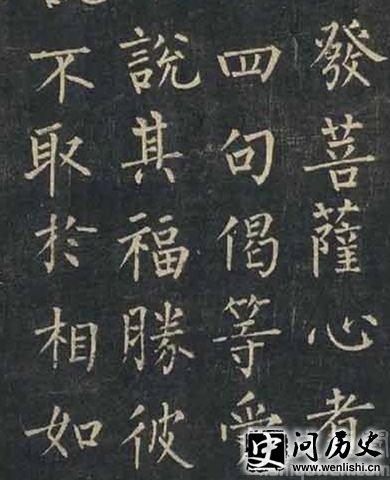 發菩薩心者
四句偈等受
說其福勝彼
不取於相如
问历史
www.wenlishi.cn